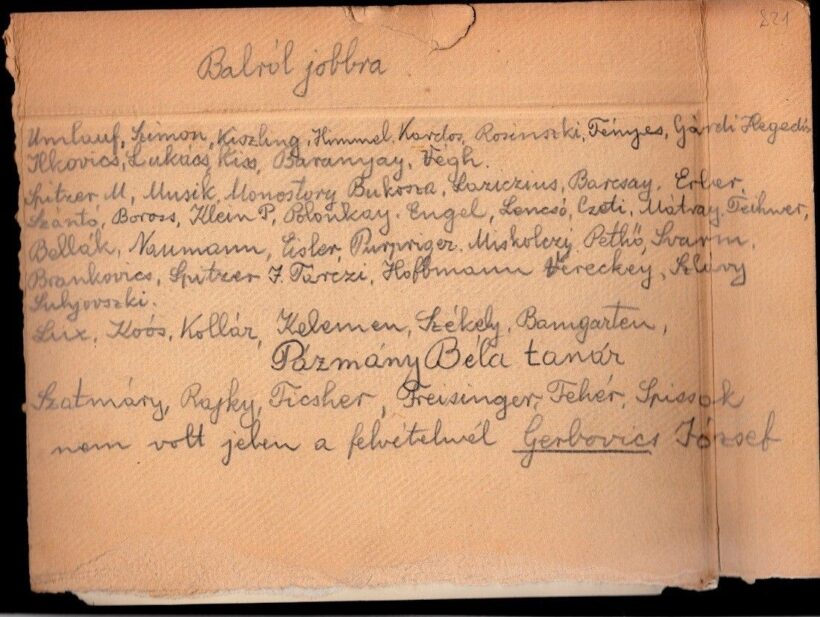 821
Balról jobbra
Umlauf, Szimon, Kiszling, Himmel, Kardos, Rosinszki, Fényes, Gárdi Hegedűs
Ilkovics, Lukács, Kiss, Baranyay, Végh.
Spitzer M, Musik, Monostory Bukosza, Laziczius, Barcsay. Erber,
Szántó, Boross, Klein P, Polónkay. Engel, Lencsó, Czoti, Mátray, Teihner,
Bellák, Naumann, Eisler, Purpriger. Miskolczy Pethő, Svarm,
Brankovics, Spitzer J. Tarczi, Hoffmann Vereckey, Szlávy
Sulyovszki.
Lux, Koós, Kollár, Kelemen, Székely, Bamgarten,
Pázmány Béla tanár
Szatmáry, Rajky, Ficsher, Preisinger, Fehér, Spissak
nem volt jelen a felvételnél Gerbovics József